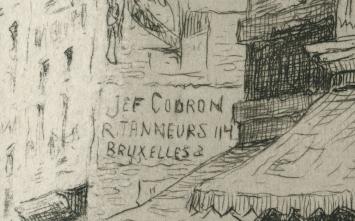 JEF CODRON
R. TANNEURS 114
BRUXELLES 2